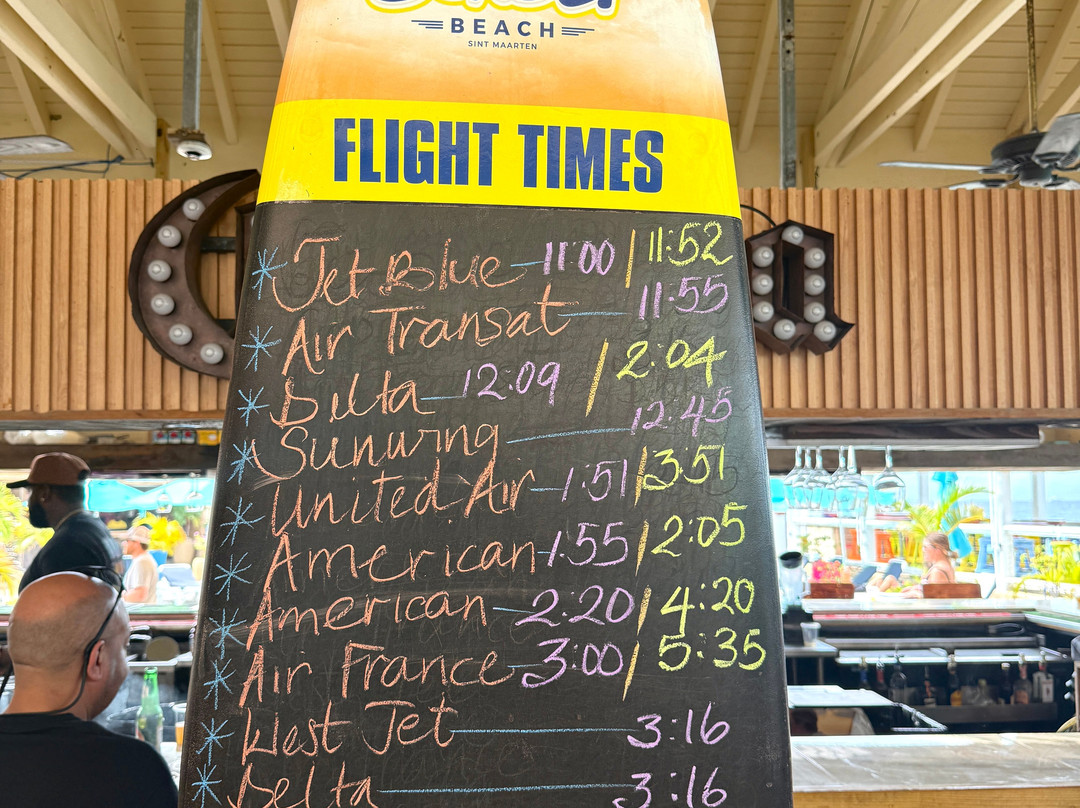 BEACH
SINT MAARTEN
FLIGHT TIMES
* Jet Blue - 11:00 / 11:52
* Air Transat - 11:55
* Delta - 12:09 / 2:04
* Sunwing - 12:45
* United Air - 1:51 / 3:51
* American - 1:55 / 2:05
* American - 2:20 / 4:20
* Air France - 3:00 / 5:35
* West Jet - 3:16
* Delta - 3:16